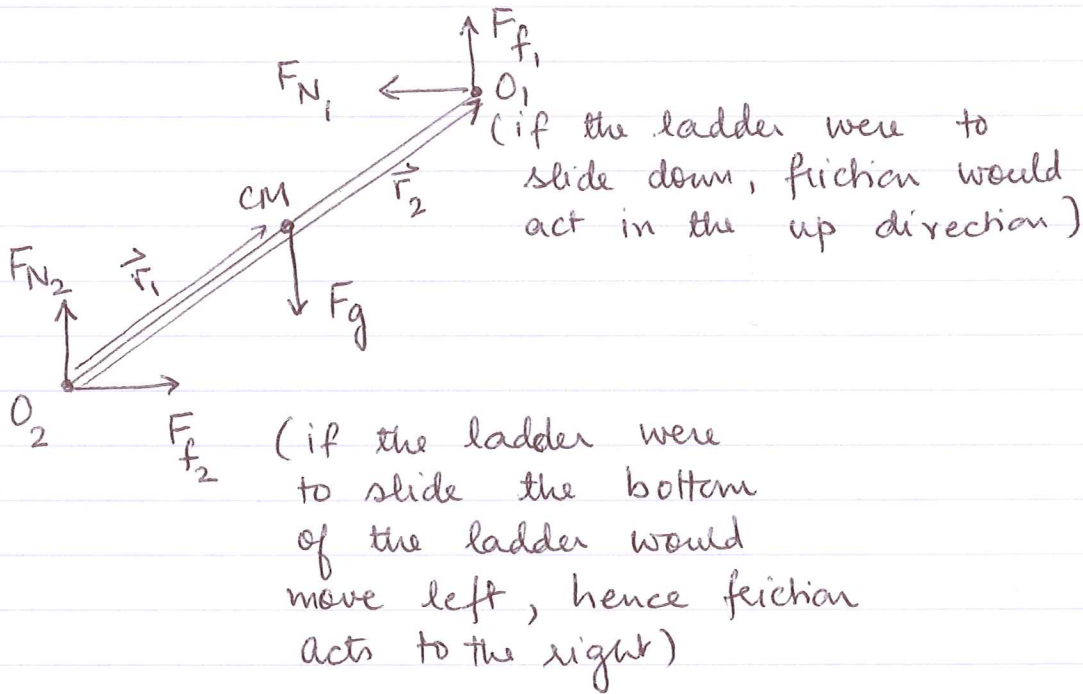 F_f₁
F_N₁
O₁
(if the ladder were to
slide down, friction would
act in the up direction)
r⃗₂
CM
F_N₂
r⃗₁
F_g
O₂
F_f₂
(if the ladder were
to slide the bottom
of the ladder would
move left, hence friction
acts to the right)